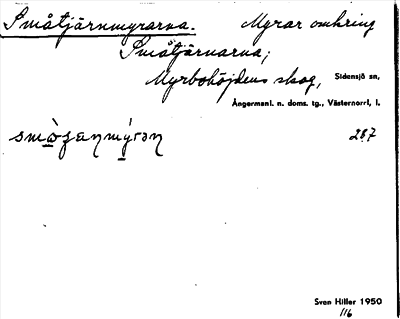 Småtjärnmyrarna. Myrar omkring
Småtjärnarna;
Myrbohöjdens skog, Sidensjö sn,
Ångermanl. n. doms. tg., Västernorrl. l.
287
Sven Hiller 1950
116